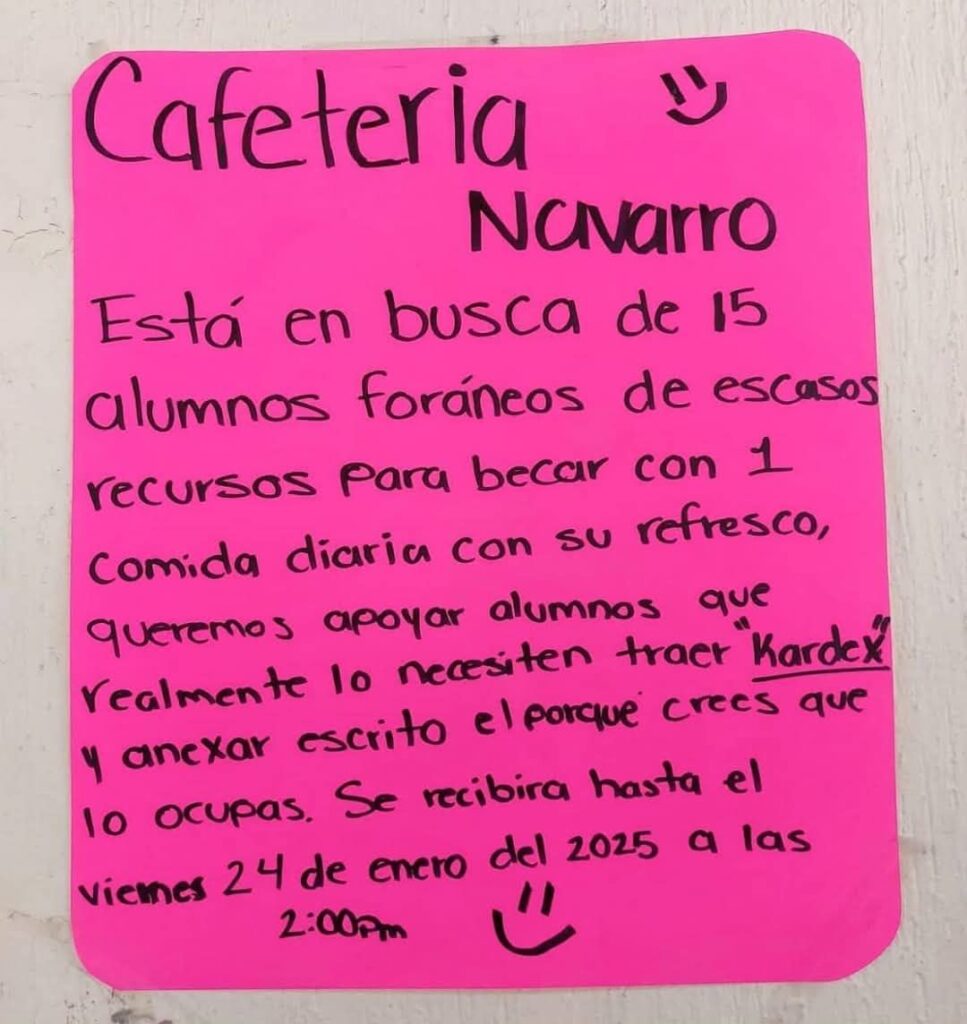 Cafeteria
Navarro
Está en busca de 15
alumnos foráneos de escasos
recursos para becar con 1
comida diaria con su refresco,
queremos apoyar alumnos que
realmente lo necesiten traer "Kardex"
y anexar escrito el porqué crees que
lo ocupas. Se recibira hasta el
viernes 24 de enero del 2025 a las
2:00pm